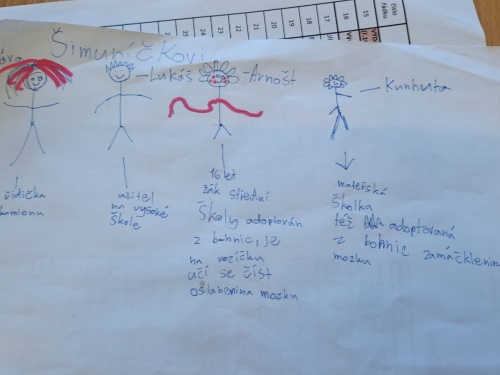 Šimuníčkovi
Lukáš
Arnošt
Kunhuta
řidička
kamionu
učitel
na vysoké
škole
16 let
žák střední
školy adoptován
z bohnic, je
na vozíčku
učí se číst
oslabenina mozku
mateřská
školka
též adoptovaná
z bohnic zamáčklenina
mozku
15
16
17
18
19
20
21
22
23
24
25